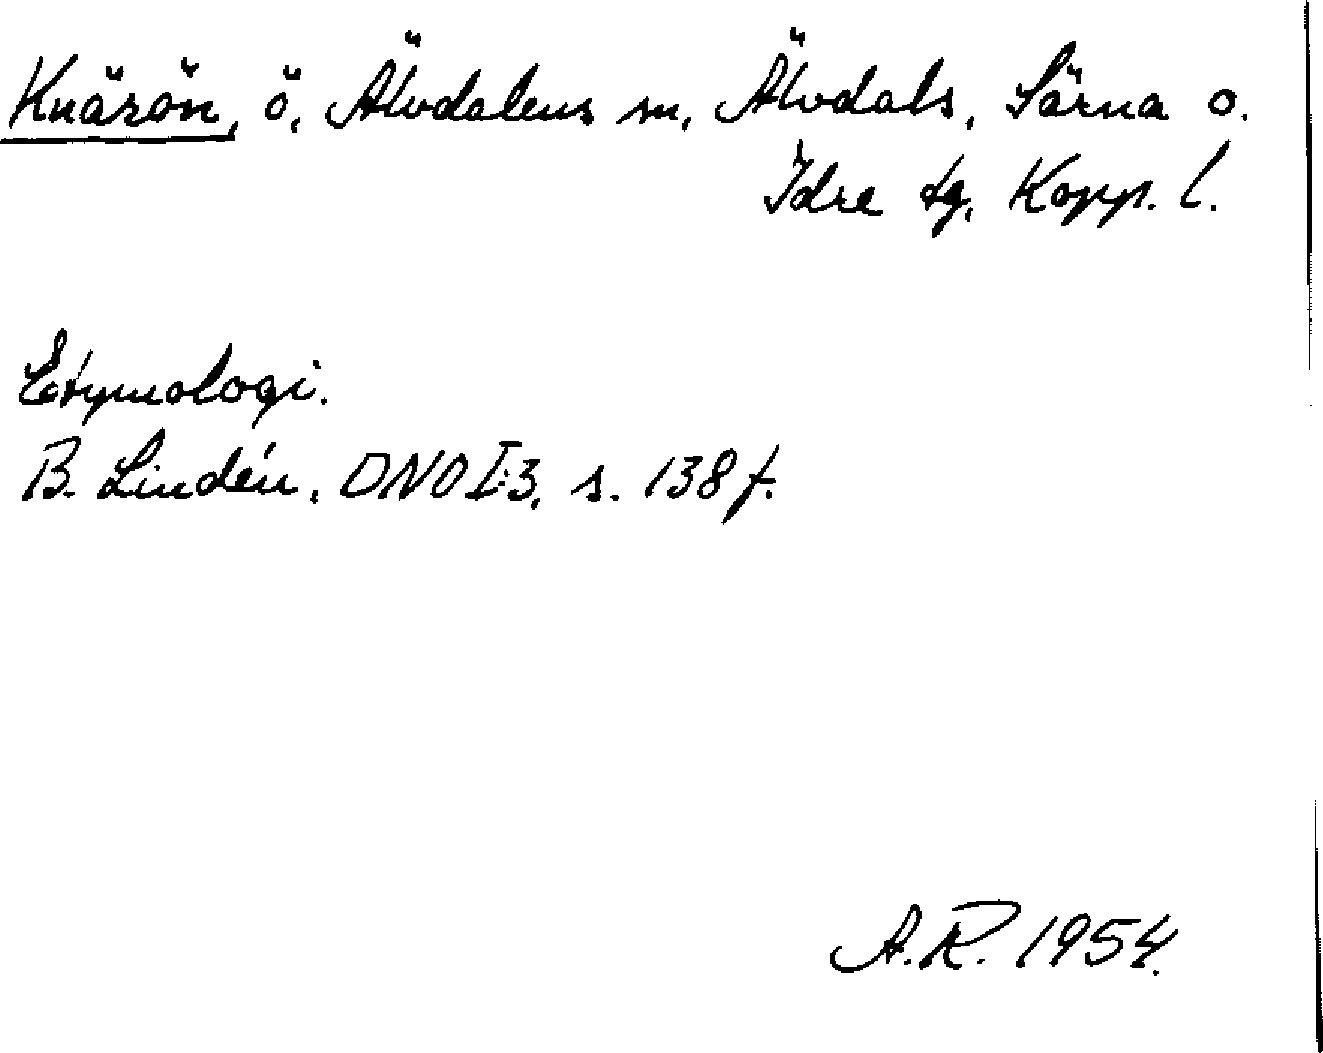 Knärön, ö, Älvdalens sn, Älvdals, Särna o.
Idre tg, Kopp. l.
Etymologi.
B. Lindén, DNO I:3, s. 138 f.
A.R. 1954.